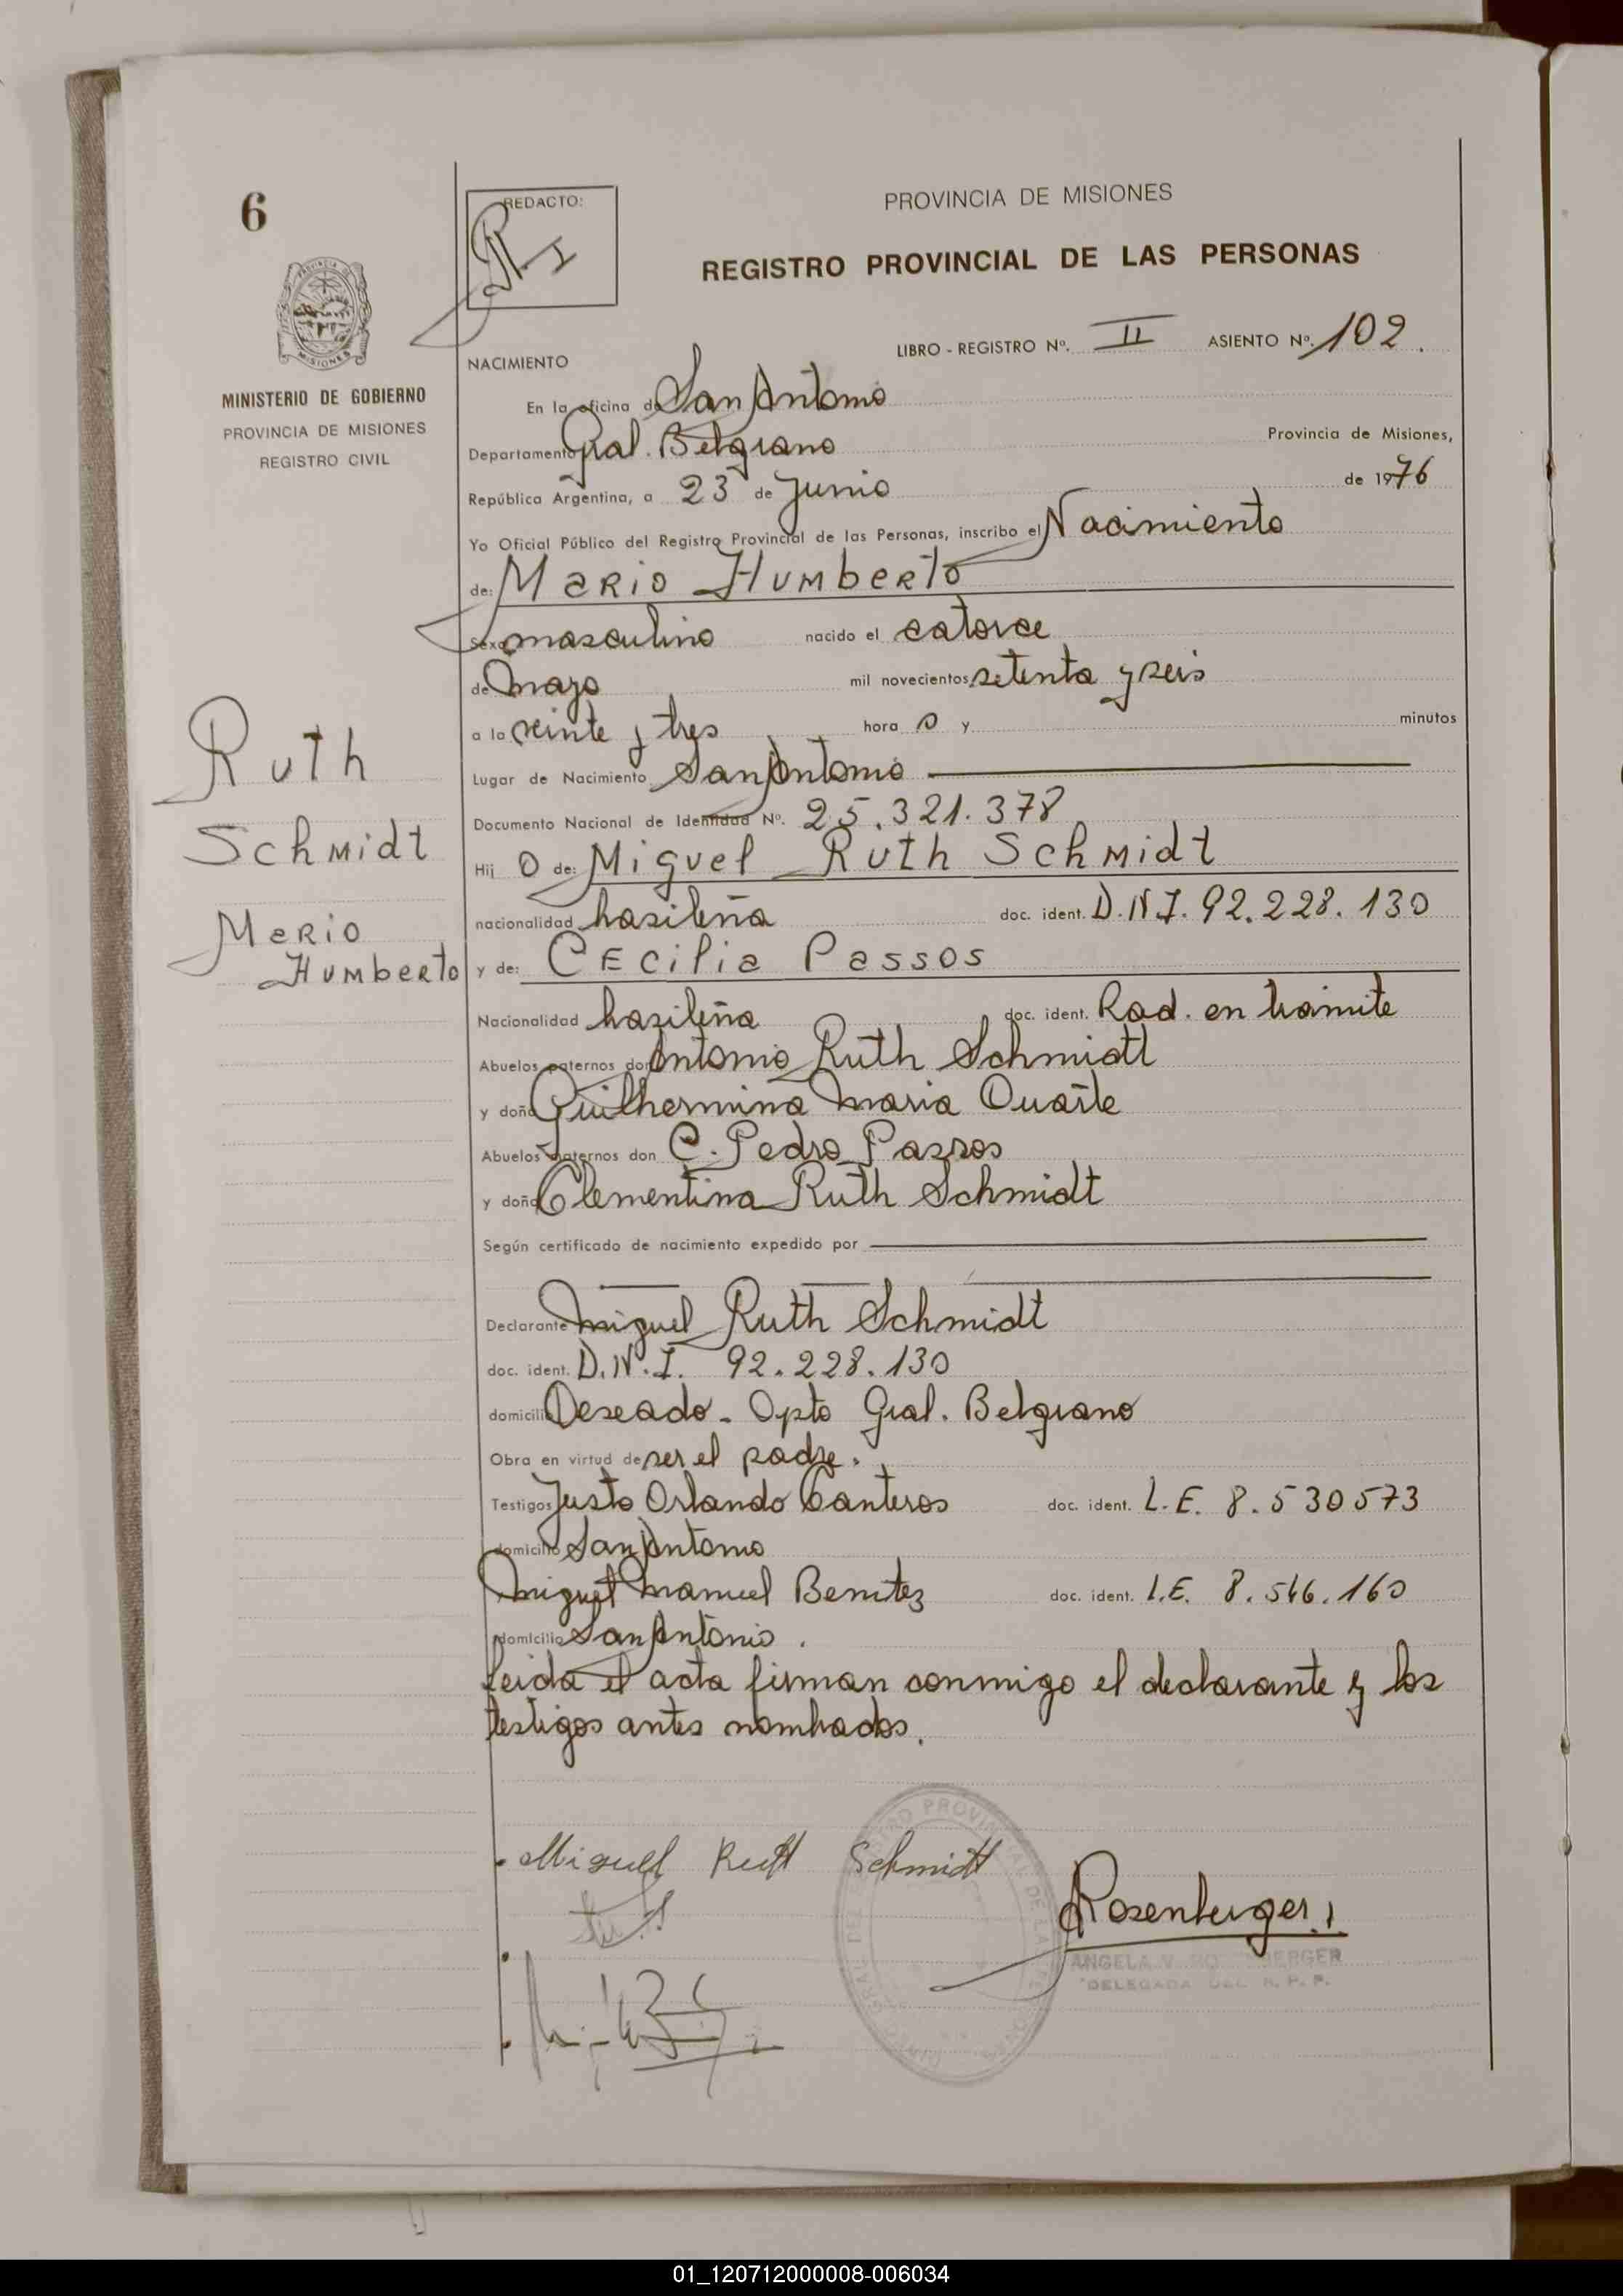 6
REDACTO:
PROVINCIA DE MISIONES
REGISTRO PROVINCIAL DE LAS PERSONAS
MISIONES
MINISTERIO DE GOBIERNO
PROVINCIA DE MISIONES
REGISTRO CIVIL
LIBRO - REGISTRO Nº. II ASIENTO Nº. 102.
NACIMIENTO
En la oficina de San Antonio
Departamento Gral. Belgrano Provincia de Misiones,
República Argentina, a 23 de Junio de 1976
Yo Oficial Público del Registro Provincial de las Personas, inscribo el Nacimiento
de: Mario Humberto
Sexo masculino nacido el catorce
de mayo mil novecientos setenta y seis
a la veinte y tres hora s y minutos
Lugar de Nacimiento San Antonio
Documento Nacional de Identidad Nº. 25.321.378
Hij o de: Miguel Ruth Schmidt
nacionalidad brasileña doc. ident. D.N.I. 92.228.130
y de: Cecilia Passos
Nacionalidad brasileña doc. ident. Rad. en tramite
Abuelos paternos don Antonio Ruth Schmidt
y doña Guilhermina Maria Duarte
Abuelos maternos don C. Pedro Passos
y doña Clementina Ruth Schmidt
Según certificado de nacimiento expedido por
Declarante Miguel Ruth Schmidt
doc. ident. D.N.I. 92.228.130
domicilio Deseado - Dpto Gral. Belgrano
Obra en virtud de ser el padre.
Testigos Justo Orlando Canteros doc. ident. L.E. 8.530573
domicilio San Antonio
Miguel Manuel Benitez doc. ident. L.E. 8.546.160
domicilio San Antonio.
leida el acta firman conmigo el declarante y los
testigos antes nombrados.
Ruth
Schmidt
Mario
Humberto
Miguel Ruth Schmidt
Rosenberger
DELEGADA DEL R. P. P.
01_120712000008-006034